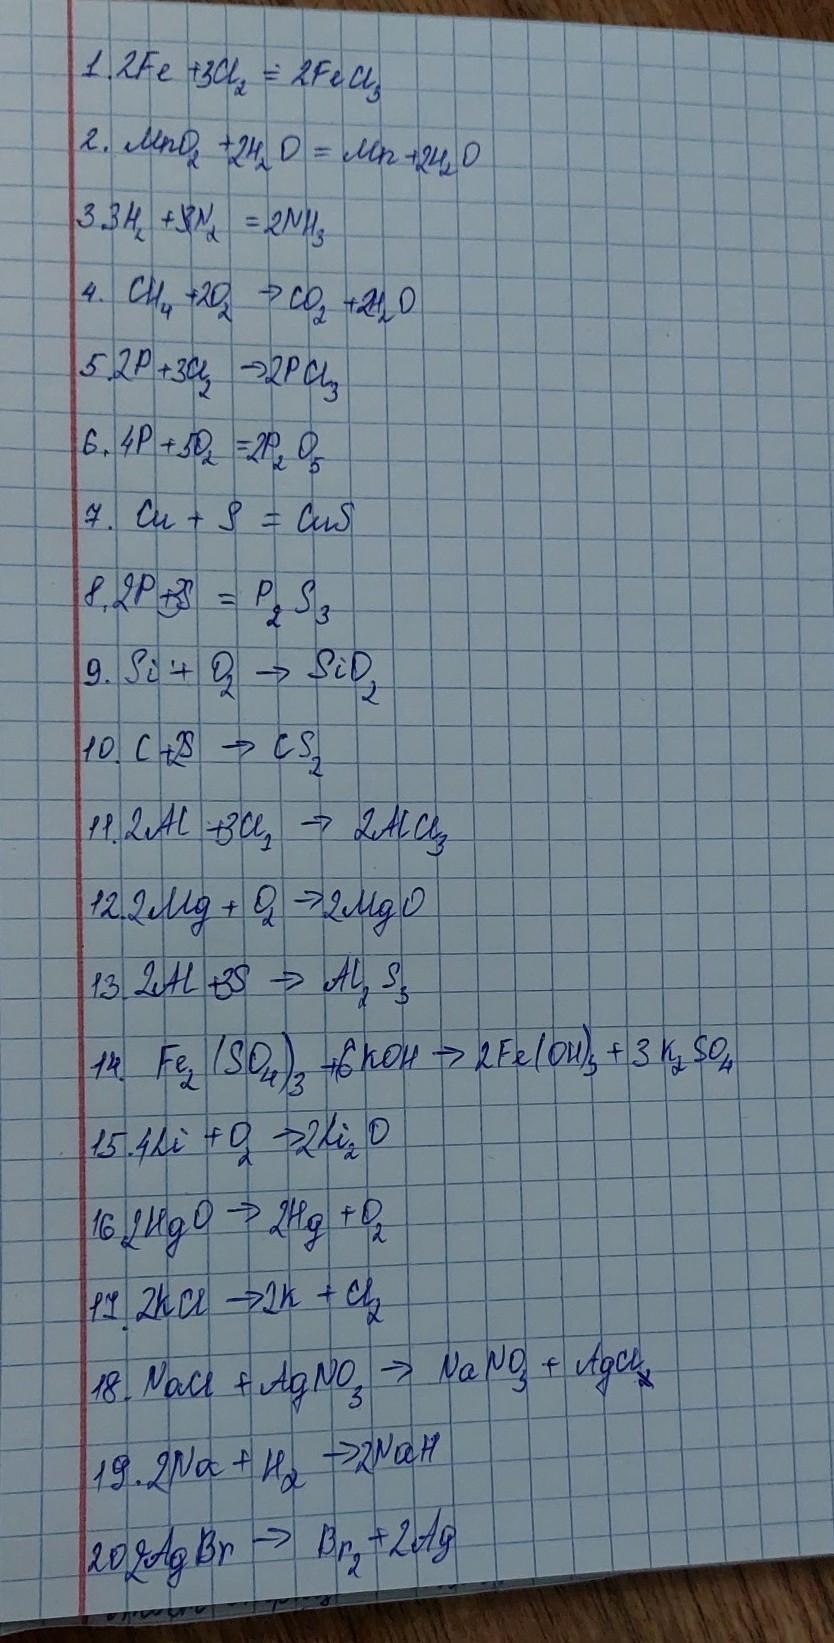 1. 2Fe + 3Cl₂ = 2FeCl₃
2. MnO₂ + 2H₂O = Mn + 2H₂O
3. 3H₂ + N₂ = 2NH₃
4. CH₄ + 2O₂ → CO₂ + 2H₂O
5. 2P + 3Cl₂ → 2PCl₃
6. 4P + 5O₂ = 2P₂O₅
7. Cu + S = CuS
8. 2P + 3S = P₂S₃
9. Si + O₂ → SiO₂
10. C + 2S → CS₂
11. 2Al + 3Cl₂ → 2AlCl₃
12. 2Mg + O₂ → 2MgO
13. 2Al + 3S → Al₂S₃
14. Fe₂(SO₄)₃ + 6KOH → 2Fe(OH)₃ + 3K₂SO₄
15. 4Li + O₂ → 2Li₂O
16. 2HgO → 2Hg + O₂
17. 2KCl → 2K + Cl₂
18. NaCl + AgNO₃ → NaNO₃ + AgCl
19. 2Na + H₂ → 2NaH
20. 2AgBr → Br₂ + 2Ag